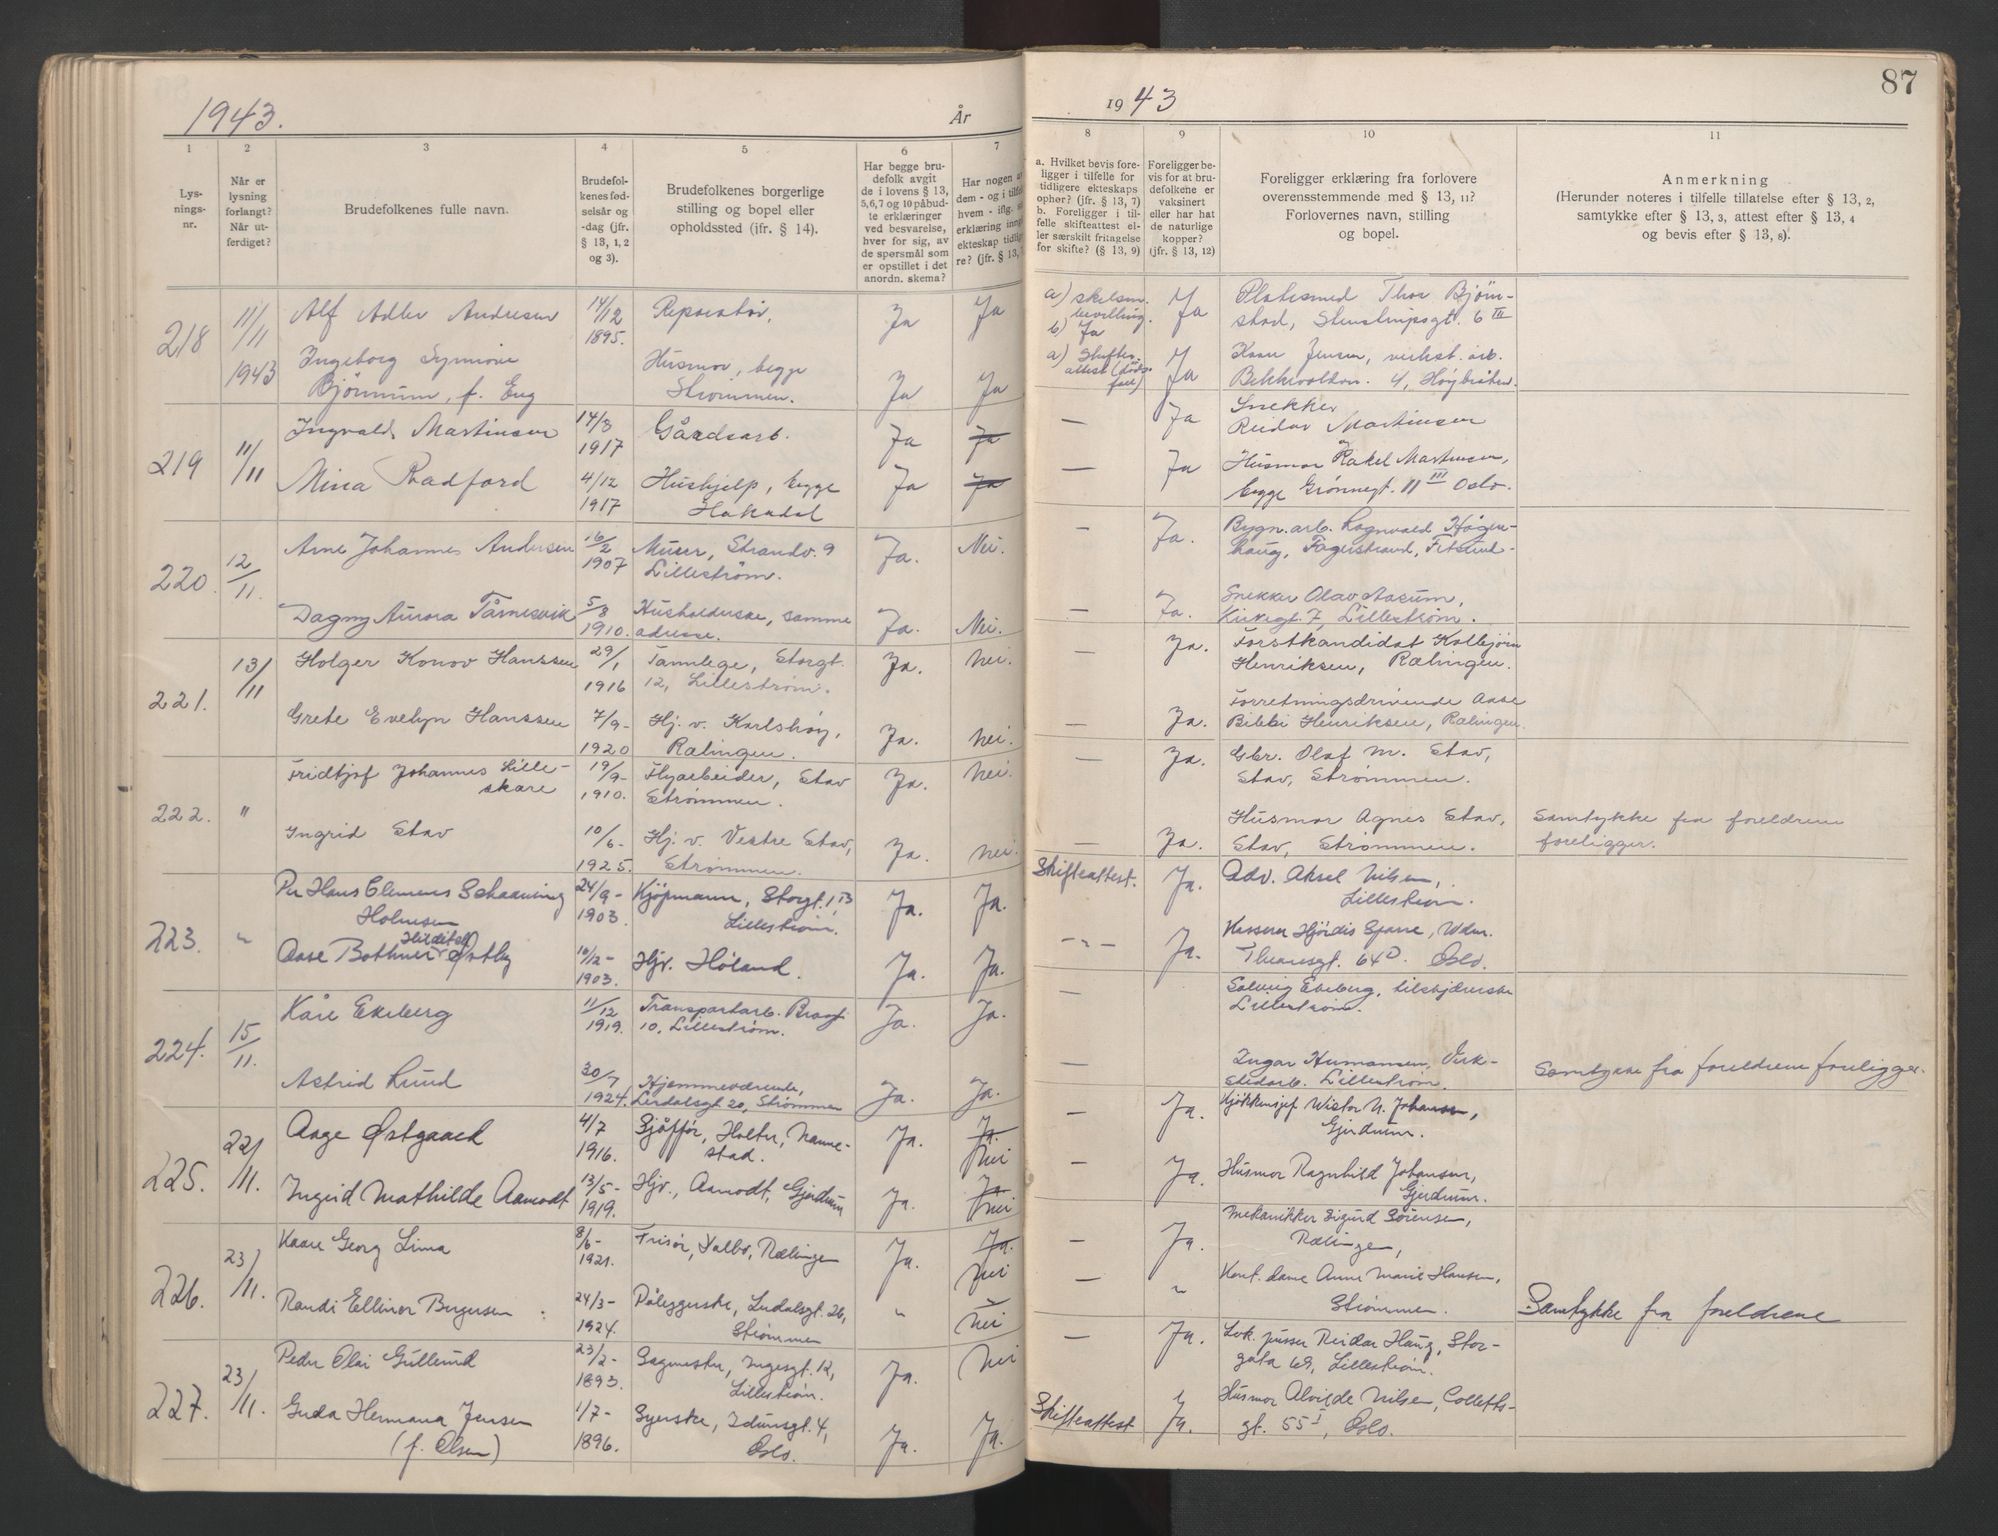 1943.
År
1
2
3
4
5
6
7
Lys-
nings-
nr.
Når er
lysning
forlangt?
Når ut-
ferdiget?
Brudefolkenes fulle navn.
Brudefol-
kenes fød-
selsår og
-dag (jfr.
§ 13, 1, 2
og 3).
Brudefolkenes borgerlige
stilling og bopel eller
opholdssted (jfr. § 14).
Har begge bru-
defolk avgit
de i lovens § 13,
5, 6, 7 og 10 påbud-
te erklæringer
ved besvarelse,
hver for sig, av
de spørsmål som
er opstillet i det
anordn. skema?
Har nogen a
dem - og i tilfel
hvem - iflg. s
erklæring inng
ekteskap tidlig
re? (jfr. § 13,
218
11/11
1943
Alf Adler Andresen
14/12
1895.
Reparatør,
Ja
Ja
Ingeborg Synnøve
Bjørnum, f. Eng
Husmor, begge
Strømmen.
Ja
Ja
219
11/11
Ingvald Martinsen
14/3
1917
Gårdsarb.
Ja
Ja
Mina Radford
4/12
1917
Hushjelp, begge
Hakadal
Ja
Ja
220.
12/11.
Arne Johannes Andersen
16/2
1907
Murer, Strandv. 9
Lillestrøm.
Ja.
Nei.
Dagny Aurora Tårnesvik
5/8
1910.
Husholderske, samme
adresse.
Ja.
Nei.
221.
13/11
Holger Konov Hanssen
29/1
1916
Tannlege, Storgt.
12, Lillestrøm.
Ja.
nei.
Grete Evelyn Hanssen
7/9-
1920
Hj. v. Karlshøy,
Rælingen.
Ja.
nei.
222.
"
Fridtjof Johannes Lille-
skare
19/9-
1910.
Flyarbeider, Stav
Strømmen.
Ja.
nei.
Ingrid Stav
10/6-
1925.
Hj. v. Vestre Stav,
Strømmen.
Ja.
nei.
223.
"
Per Hans Clemens Schaanning
Holmsen
24/9-
1903.
Kjøpmann, Storgt. 1, B
Lillestrøm.
Ja.
Ja.
Aase Bothner Østby
10/12-
1903.
Hjv. Høland.
Ja.
Ja.
224.
15/11.
Kåre Ekeberg
11/12
1919.
Transportarb. Bragt
10, Lillestrøm.
Ja.
Ja.
Astrid Lund
30/7
1924.
Hjemmeværende,
Lerdalsgt 20, Strømmen
Ja.
Ja.
225.
22/11.
Aage Østgaard
4/7
1916.
Sjåffør, Holter, Nanne-
stad.
Ja.
Ja.
Nei
Ingrid Mathilde Aamodt
13/5-
1919.
Hjv., Aamodt, Gjerdrum
Ja.
Ja
Nei
226.
23/11.
Kaare Georg Lima
8/6-
1921.
Frisør, Valby, Rælingen
Ja.
Ja.
Nei
Randi Ellinor Bergersen
24/3-
1924.
Påleggerske, Lerdalsgt. 26,
Strømmen
"
Nei
227.
23/11.
Peder Olai Gullerud
23/2-
1893.
Sagmester, Ingesgt. 12,
Lillestrøm.
Ja.
Nei
Guda Hermana Jensen
(f. Olsen)
1/7-
1896.
Syerske, Idunsgt. 4,
Oslo.
Ja.
Ja.
87
1943
8
9
10
11
a. Hvilket bevis fore-
ligger i tilfelle for
tidligere ekteskaps
ophør? (jfr. § 13, 7)
b. Foreligger i til-
felle skifteattest el-
ler særskilt fritagelse
for skifte? (§ 13, 9)
Foreligger be-
vis for at bru-
defolkene er
vaksinert
eller har hat
de naturlige
kopper?
(jfr. § 13, 12)
Foreligger erklæring fra forlovere
overensstemmende med § 13, 11?
Forlovernes navn, stilling
og bopel.
Anmerkning
(Herunder noteres i tilfelle tillatelse efter § 13, 2,
samtykke efter § 13, 3, attest efter § 13, 4
og bevis efter § 13, 8).
a) skilsm.
bevilling.
b) Ja
Ja
Platesmed Thor Bjørn-
stad, Stenstrupsgt. 6 III
a) Skifte-
attest (døds-
fall)
Ja
Kaare Jensen, verkst. arb.
4, Høybråten.
—
Ja
Snekker
Reidar Martinsen
—
Ja
Husmor Rakel Martinsen,
begge Grønnegt. 11 III Oslo.
—
Ja.
Bygn.arb. Ragnvald Hågen-
haug, Fagerstrand,
—
Ja.
Snekker Olav Aasum,
Kirkegt. 7, Lillestrøm.
—
Ja.
Forstkandidat Kolbjørn
Henriksen, Rælingen.
—
Ja.
Forretningsdrivende Aase
Bibbi Henriksen, Rælingen.
—
Ja.
Gbr. Olaf M. Stav,
Stav, Strømmen.
—
Ja.
Husmor Agnes Stav,
Stav, Strømmen.
Samtykke fra foreldrene
foreligger.
Skifteattest.
Ja.
Adv. Aksel Nilsen,
Lillestrøm.
- " -
Ja.
Kasserer Hjørdis Sparre,
Thranesgt. 64 D. Oslo.
—
Solveig Ekeberg, tilskjærerske
Lillestrøm.
—
Ingar Hermansen, Verk-
stedarb. Lillestrøm.
Samtykke fra foreldrene foreligger.
—
Ja.
Kjøkkensjef Wictor N. Johansen,
Gjerdrum.
—
Ja.
Husmor Ragnhild Johansen,
Gjerdrum.
—
Ja.
Mekanikker Sigurd Sørensen,
Rælingen,
—
"
Kont.dame Anne Marie Hansen,
Strømmen.
Samtykke fra foreldrene
—
Ja.
Lok. pusser Reidar Haug, Stor-
gata 69, Lillestrøm.
Skifteattest
Ja.
Husmor Alvilde Nilsen, Colletts-
gt. 55 I, Oslo.